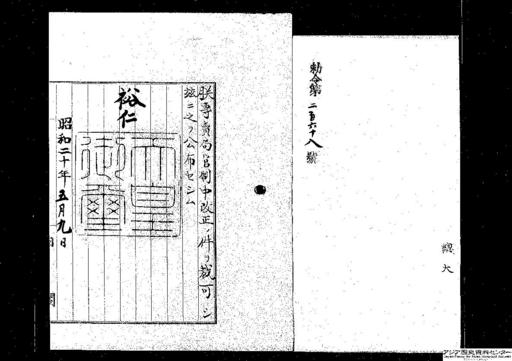 勅令第二百六十八號
朕專賣局官制中改正ノ件ヲ裁可シ
茲ニ之ヲ公布セシム
裕仁
天皇御璽
昭和二十年五月九日
アジア歴史資料センター